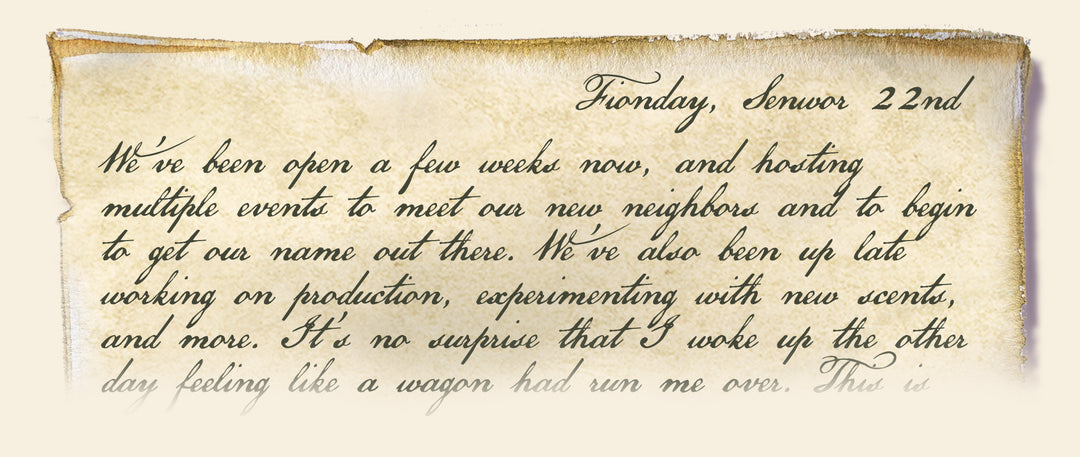 Fionday, Senwor 22nd
We've been open a few weeks now, and hosting
multiple events to meet our new neighbors and to begin
to get our name out there. We've also been up late
working on production, experimenting with new scents,
and more. It's no surprise that I woke up the other
day feeling like a wagon had run me over. This is